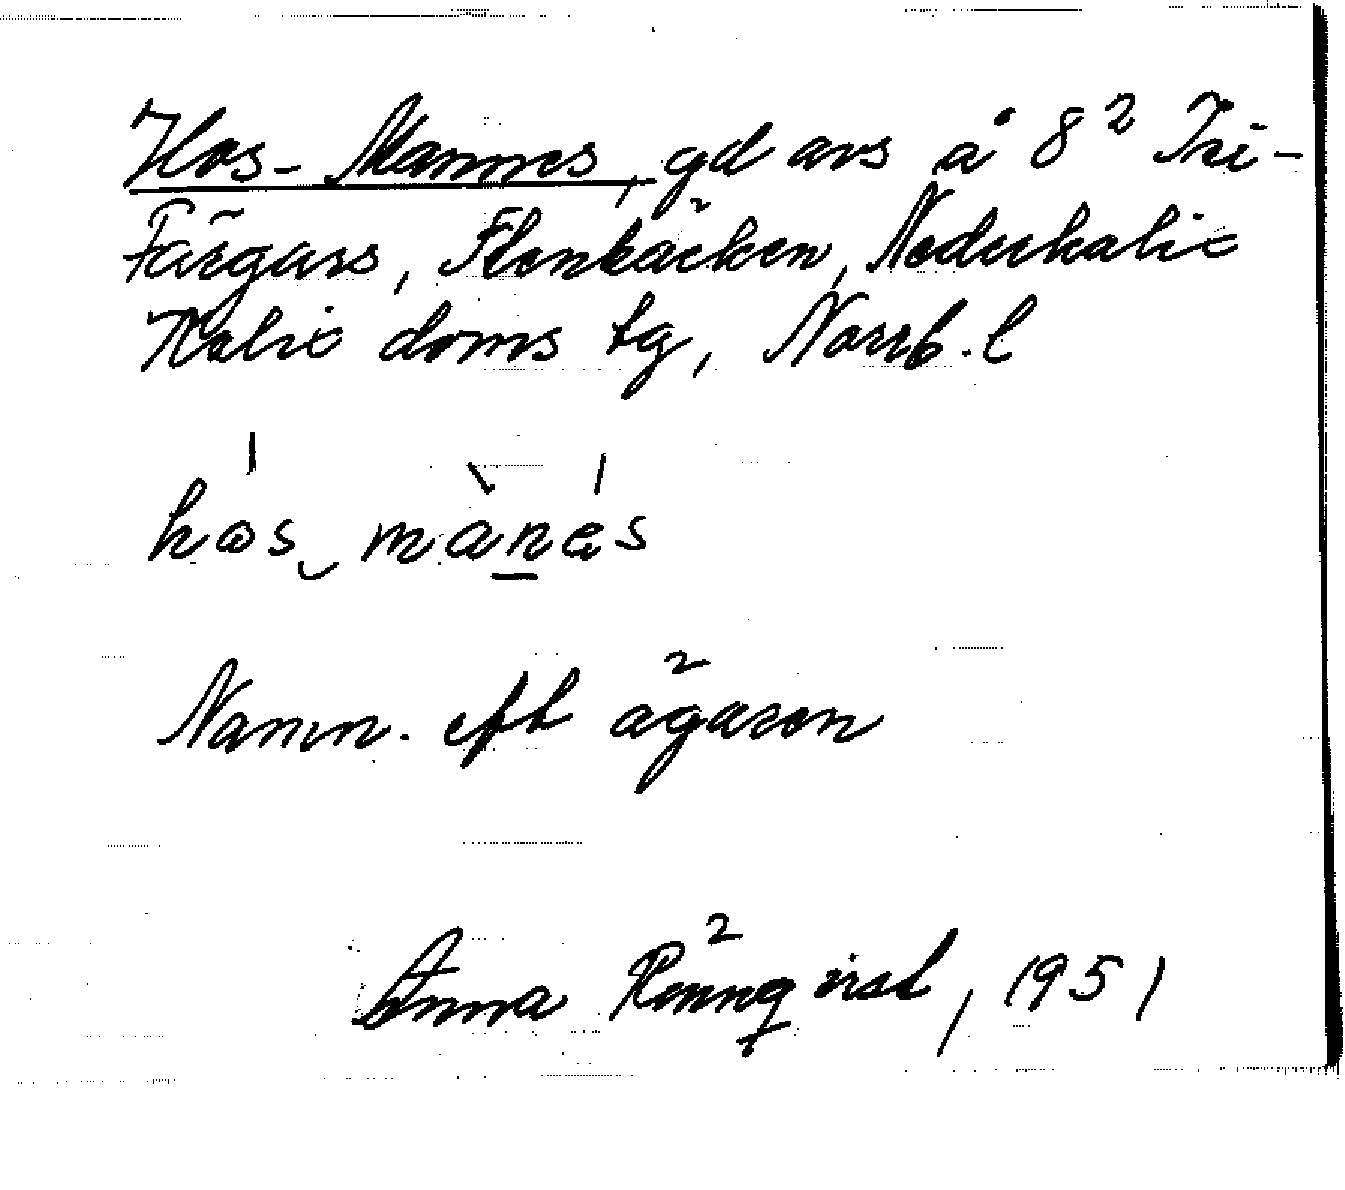 Hos-Mannes, gd avs å 8² Tri-
Färgars, Stenbäcken, Nederkalix
Kalix doms tg, Norrb. l
hos manes
Namn. eft ägaren
Anna Rönnqvist, 1951